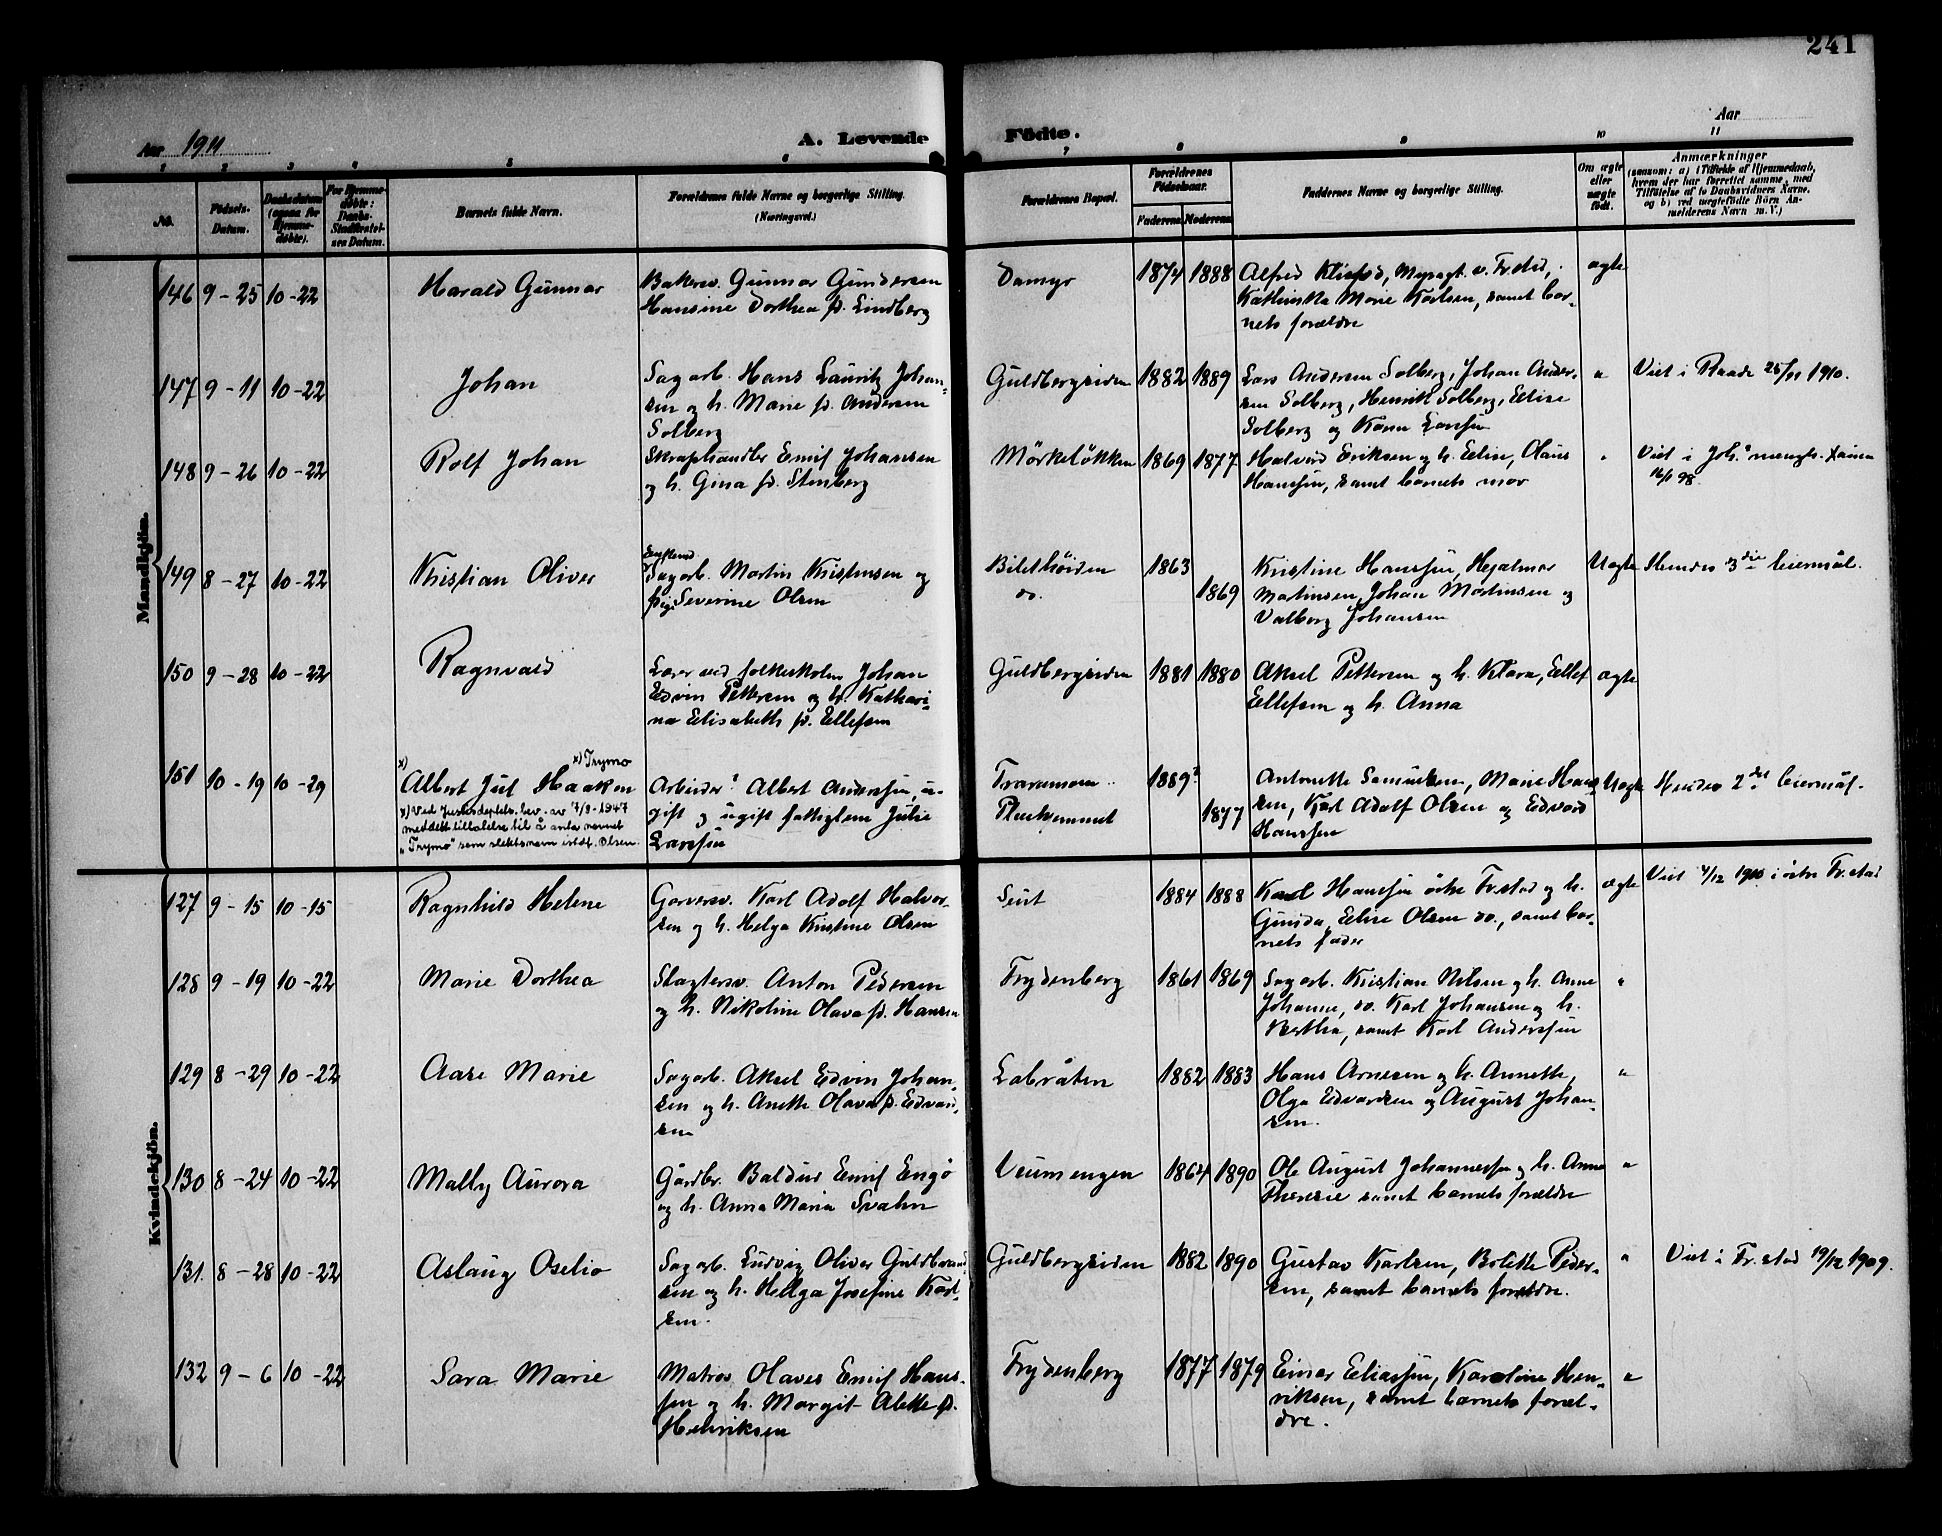 241
Aar 1911
A. Levende
Födte.
Aar
1 2 3 4 5 6
7 8 9 10 11
No.
Fødsels-
Datum.
Daabsdatum
(ogsaa for
Hjemme-
døbte).
For Hjemme-
døbte:
Daabs-
Stadfæstel-
ses Datum.
Barnets fulde Navn.
Forældrenes fulde Navne og borgerlige Stilling.
(Næringsvei.)
Forældrenes Bopæl.
Forældrenes
Fødselsaar.
Faderens Moderens
Faddernes Navne og borgerlige Stilling.
Om ægte
eller
uægte
født.
Anmærkninger
(saasom: a) i Tilfælde af Hjemmedaab,
hvem der har forrettet samme, med
Tilføielse af to Daabsvidners Navne,
og b) ved uægtefødte Börn An-
melderens Navn m. V.)
Mandkjön.
146 9-25 10-22 Harald Gunnar
Bakersv. Gunnar Gundersen
Hansine Dorthea f. Lindberg
Damyr 1874 1888
Alfred
Kathinka Marie Karlsen, samt bar-
nets forældre
ægte
147 9-11 10-22 Johan
Sagarb. Hans Lauritz Johan-
sen og h. Marie f. Andersen
Solberg
Guldbergsiden 1882 1889
Lars Andersen Solberg, Johan Ander-
sen Solberg, Henrik Solberg, Elise
Solberg og Karen Larssen
" Viet i Raade 25/11 1910.
148 9-26 10-22 Rolf Johan
Skraphandler Emil Johansen
og h. Gina f. Stenberg
Mörkeløkken 1869 1877
Halvord Eriksen og h. Elise, Olaus
Hanssen, samt barnets mor
" Viet i Joh.s menigh.
16/1 98.
149 8-27 10-22 Kristian Oliver
Enkemd.
Sagarb. Martin Kristensen og
pige Severine Olsen
Bilethöiden 1863
do. 1869
Kristine Hanssen, Hjalmar
Martinsen, Johan Martinsen og
Valborg Johansen
Uægte Hendes 3die leiermål.
150 9-28 10-22 Ragnvald
Lærer ved folkeskolen Johan
Edvin Pettersen og h. Kathari-
na Elisabeth f. Ellefsen
Guldbergsiden 1881 1880
Aksel Pettersen og h. Klara, Ellef
Ellefsen og h. Anna
ægte
151 10-19 10-29
x) x) Trymo
Albert Jul Haaken
x) Ved Justisdeptets. bev. av 7/3-1947
meddelt tillatelse til å anta navnet
"Trymo" som slektsnavn istdf. Olsen.
Arbeider? Albert Anderssen, u-
gift og ugift fattiglem Julie
Larssen
Traramoen 1889?
Pleiehemmet 1877
Antonette Samuelsen, Marie Hans-
sen, Karl Adolf Olsen og Edvard
Hanssen
Uægte Hendes 2det leiermål.
Kvindekjön.
127 9-15 10-15 Ragnhild Helene
Garversv. Karl Adolf Halvor-
sen og h. Helga Kristine Olsen
Seut 1884 1888
Karl Hanssen östre Fr.stad og h.
Gunda, Elise Olsen do., samt bar-
nets fader
ægte Viet 4/12 1910 i östre Fr.stad
128 9-19 10-22 Marie Dorthea
Slagtersv. Anton Pedersen
og h. Nikoline Olava f. Hansen
Frydenberg 1861 1869
Sagarb. Kristian Nilsen og h. Anne
Johanne, do. Karl Johansen og h.
Bertha, samt Karl Anderssen
"
129 8-29 10-22 Aase Marie
Sagarb. Aksel Edvin Johan-
sen og h. Anette Olava f. Edvard-
sen
Labråten 1882 1883
Hans Arnesen og h. Annette,
Olga Edvardsen og August Johan-
sen.
"
130 8-24 10-22 Mally Aurora
Gårdbr. Baldur Emil Engø
og h. Anna Maria Svahn
Veumsengen 1864 1890
Ole August Johannessen og h. Anne
Theresie samt barnets forældre
"
131. 8-28 10-22 Aslaug Oselio
Sagarb. Ludvig Oliver Guldbrand-
sen og h. Helga Josefine Karl-
sen.
Guldbergsiden 1882 1890
Gustav Karlsen, Bolette Peder-
sen, samt barnets forældre.
" Viet i Fr.stad 19/12 1909.
132 9-6 10-22 Sara Marie
Matros Olaves Emil Hans-
sen og h. Margit Alette f.
Henriksen
Frydenberg 1877 1879
Einar Eliassen, Karoline Hen-
riksen, samt barnets foræl-
dre.
"